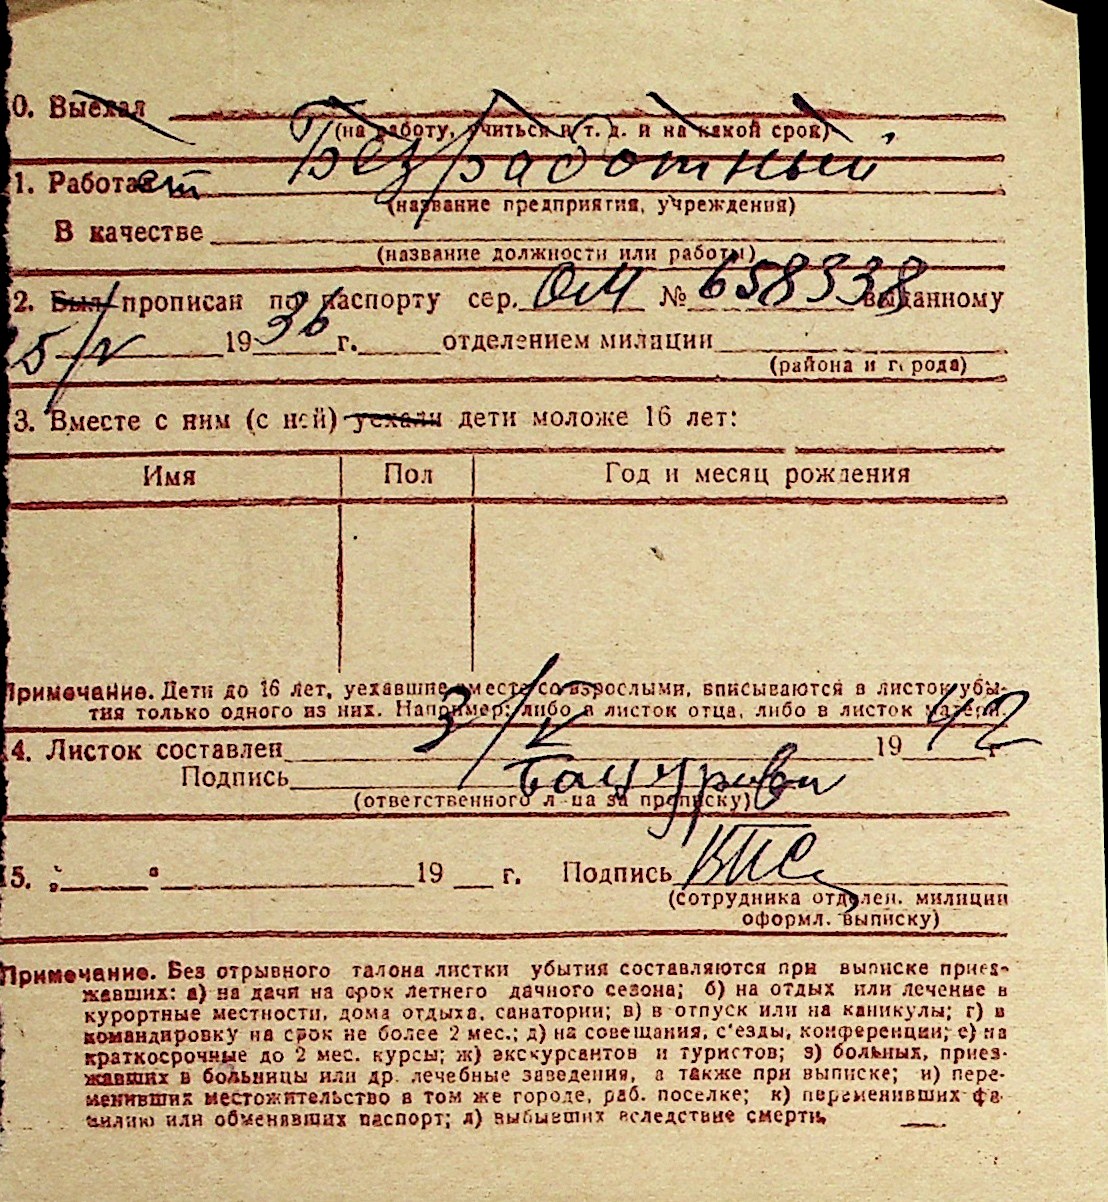 0. Выехал
(на работу, учиться и т. д. и на какой срок)
Безработный
1. Работает
(название предприятия, учреждения)
В качестве
(название должности или работы)
2. Был прописан по паспорту сер. ОМ № 658338 выданному
5/V 1936 г. отделением милиции
(района и города)
3. Вместе с ним (с ней) уехали дети моложе 16 лет:
Имя Пол Год и месяц рождения
Примечание. Дети до 16 лет, уехавшие вместе со взрослыми, вписываются в листок убы-
тия только одного из них. Например: либо в листок отца, либо в листок матери.
4. Листок составлен 3/V 1942 г.
Подпись
(ответственного лица за прописку)
15. „ “ 19 г. Подпись
(сотрудника отделен. милиции
оформл. выписку)
Примечание. Без отрывного талона листки убытия составляются при выписке приез-
жавших: а) на дачи на срок летнего дачного сезона; б) на отдых или лечение в
курортные местности, дома отдыха, санатории; в) в отпуск или на каникулы; г) в
командировку на срок не более 2 мес.; д) на совещания, с'езды, конференции; е) на
краткосрочные до 2 мес. курсы; ж) экскурсантов и туристов; з) больных, приез-
жавших в больницы или др. лечебные заведения, а также при выписке; и) пере-
менивших местожительство в том же городе, раб. поселке; к) переменивших фа-
милию или обменявших паспорт; л) выбывших вследствие смерти.